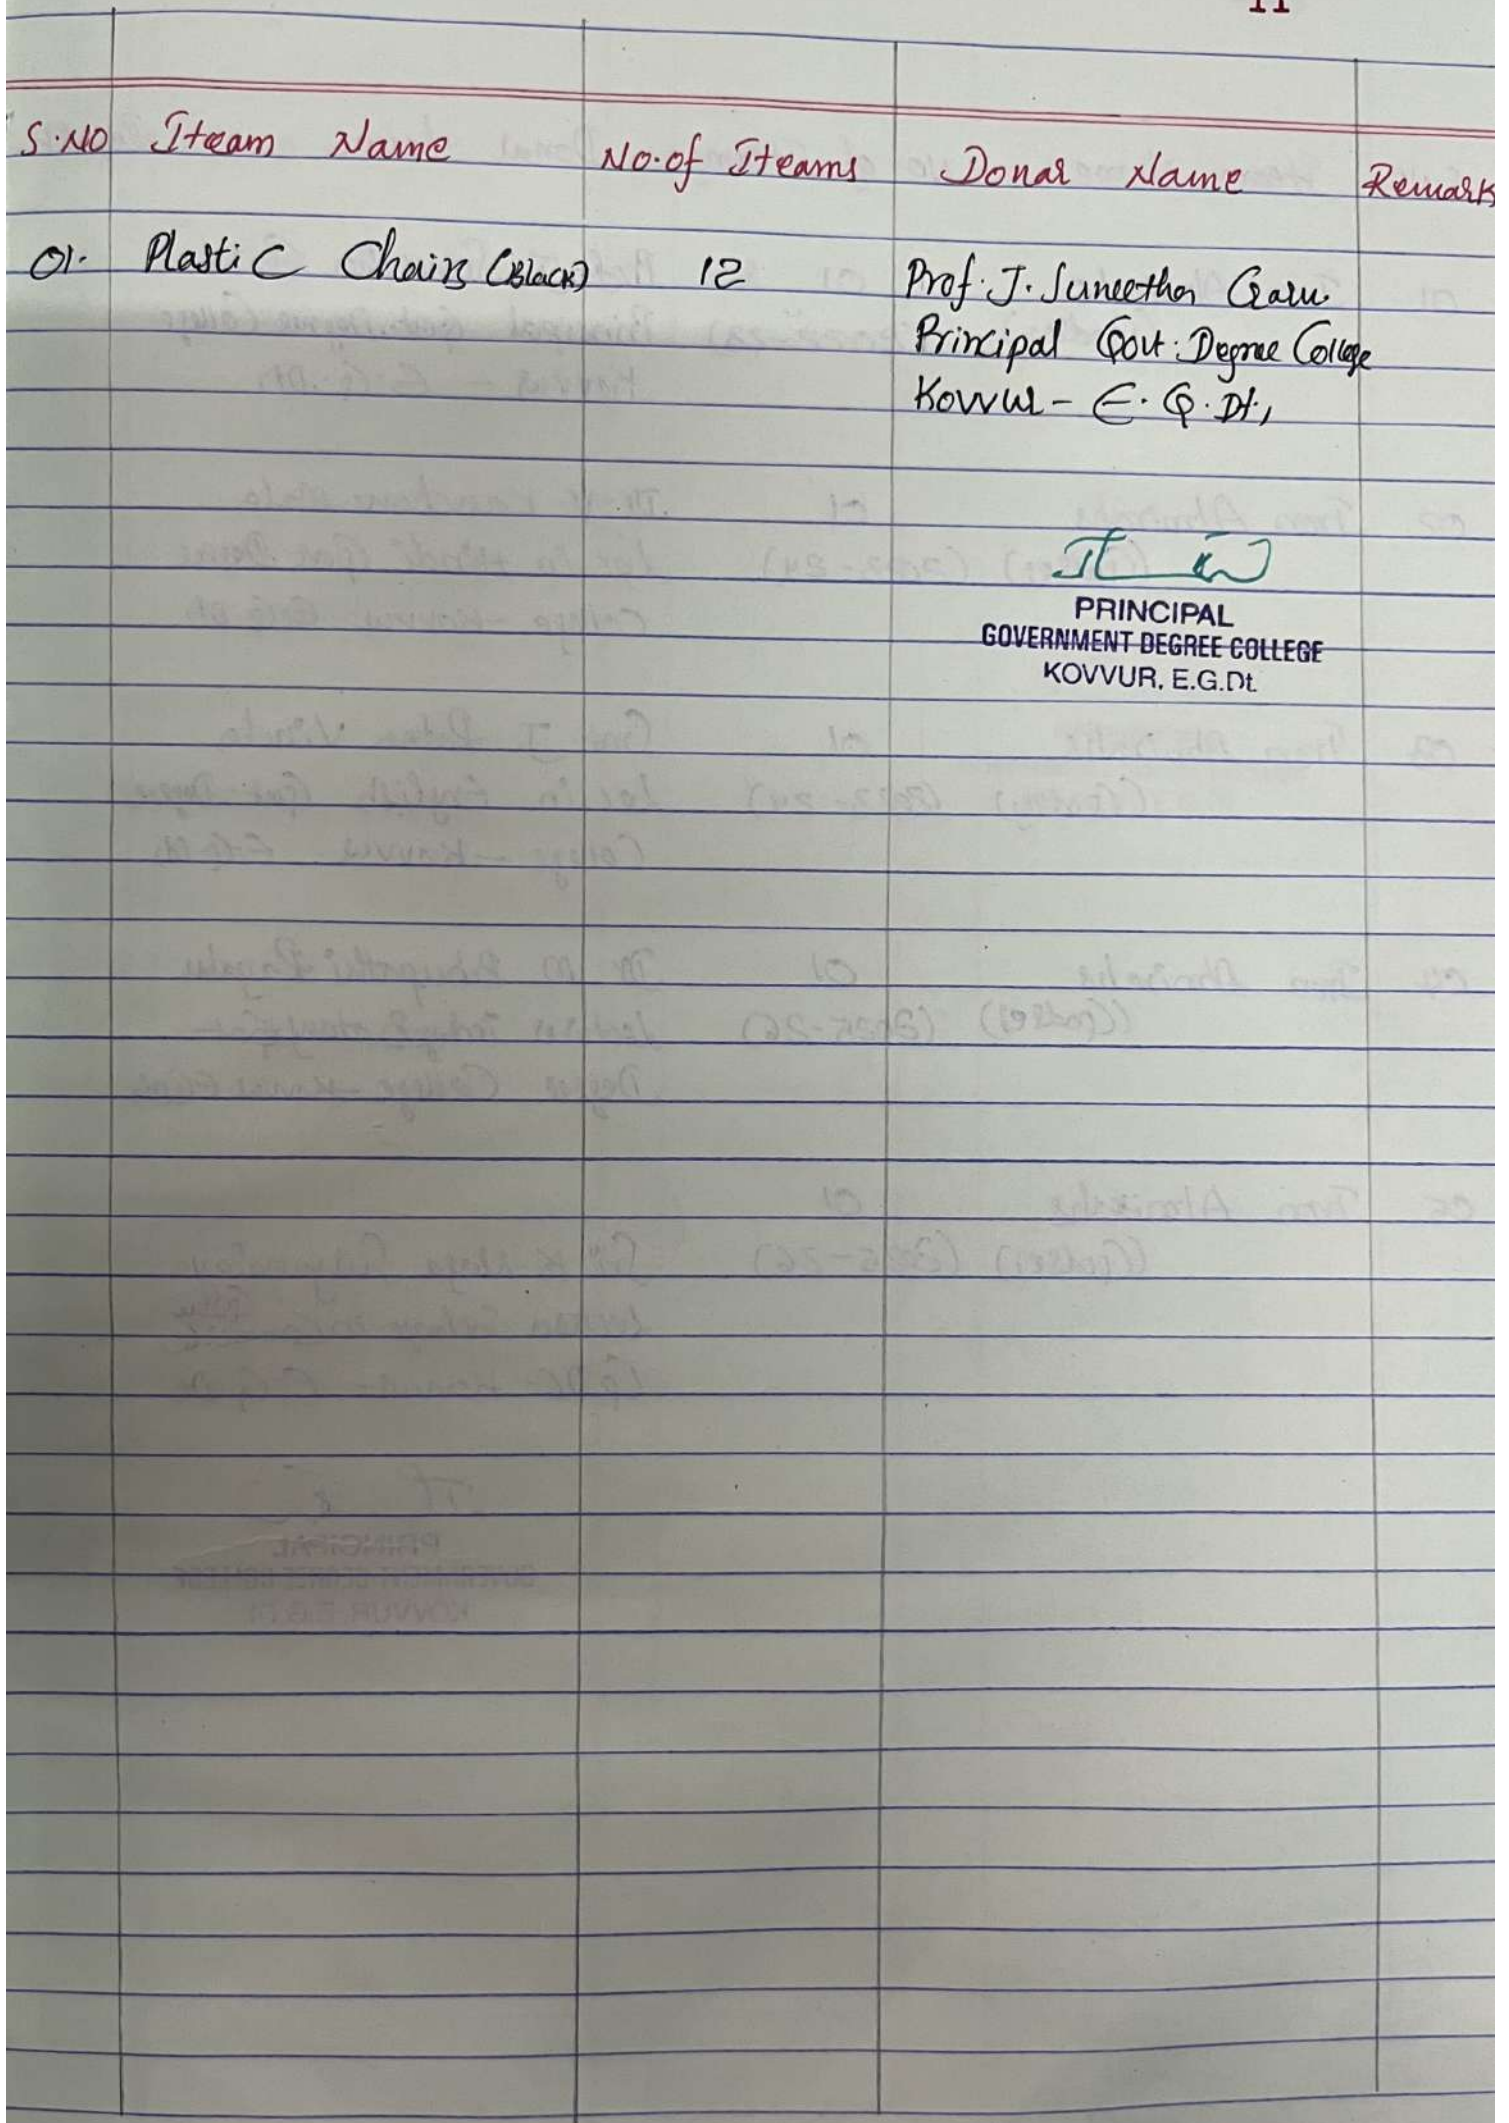 11
S.NO Iteam Name No.of Iteams Donar Name Remark
01. Plastic Chairs (Black) 12 Prof. J. Suneetha Garu
Principal Govt. Degree College
Kovvur - E.G.Dt.,
PRINCIPAL
GOVERNMENT DEGREE COLLEGE
KOVVUR, E.G.Dt.